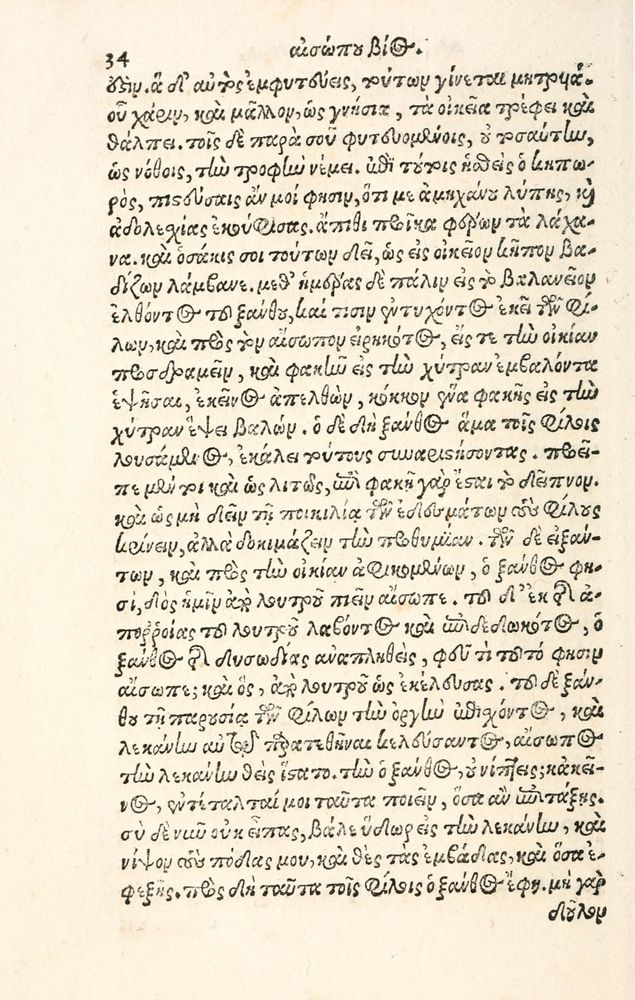 34
αἰσώπου βίος.
οὖσιν. ἃ δ' αὐτὸς ἐμφυτεύεις, τούτων γίνεται μητρυιά.
οὗ χάριν, καὶ μᾶλλον, ὡς γνήσια, τὰ οἰκεῖα τρέφει καὶ
θάλπει. τοῖς δὲ παρὰ σοῦ φυτευομένοις, οὐ τοσαύτην,
ὡς νόθοις, τὴν τροφὴν νέμει. ἐπὶ τούτοις ἡσθεὶς ὁ κηπω-
ρὸς, πιστεύσαις ἄν μοί φησιν, ὅτι με ἀμηχάνου λύπης, καὶ
ἀδολεχίας ἐκούφισας. ἄπιθι προῖκα φέρων τὰ λάχα-
να. καὶ ὁσάκις σοι τούτων δεῖ, ὡς εἰς οἰκεῖον κῆπον βα-
δίζων λάμβανε. μεθ' ἡμέρας δὲ πάλιν εἰς τὸ βαλανεῖον
ἐλθόντος τοῦ ξάνθου, καί τισιν ἐντυχόντος ἐκεῖ τῶν φί-
λων, καὶ πρὸς τὸν αἴσωπον εἰρηκότος, εἴς τε τὴν οἰκίαν
προσδραμεῖν, καὶ φακῆν εἰς τὴν χύτραν ἐμβαλόντα
ἑψῆσαι, ἐκεῖνος ἀπελθὼν, κόκκον ἕνα φακῆς εἰς τὴν
χύτραν ἕψει βαλών. ὁ δὲ δὴ ξάνθος ἅμα τοῖς φίλοις
λουσάμενος, ἐκάλει τούτους συναριστήσοντας. προεῖ-
πε μέντοι καὶ ὡς λιτῶς, ἐπὶ φακῇ γὰρ ἔσται τὸ δεῖπνον.
καὶ ὡς μὴ δεῖν τῇ ποικιλίᾳ τῶν ἐδεσμάτων τοὺς φίλους
κρίνειν, ἀλλὰ δοκιμάζειν τὴν προθυμίαν. τῶν δὲ εἰξάν-
των, καὶ πρὸς τὴν οἰκίαν ἀφικομένων, ὁ ξάνθος φη-
σὶ, δὸς ἡμῖν ἀπὸ λουτροῦ πιεῖν αἴσωπε. τοῦ δ' ἐκ τῆς ἀ-
πορροίας τοῦ λουτροῦ λαβόντος καὶ ἐπιδεδωκότος, ὁ
ξάνθος τῆς δυσωδίας ἀναπλησθεὶς, φεῦ τί τοῦτό φησιν
αἴσωπε; καὶ ὃς, ἀπὸ λουτροῦ ὡς ἐκέλευσας. τοῦ δὲ ξάν-
θου τῇ παρουσίᾳ τῶν φίλων τὴν ὀργὴν ἐπισχόντος, καὶ
λεκάνην αὐτῷ παρατεθῆναι κελεύσαντος, αἴσωπος
τὴν λεκάνην θεὶς ἵστατο. τὴν ὁ ξάνθος, οὐ νίπτεις; κἀκεῖ-
νος, ἐντέταλταί μοι ταῦτα ποιεῖν, ὅσα ἂν ἐπιτάξῃς.
σὺ δὲ νῦν οὐκ εἶπας, βάλε ὕδωρ εἰς τὴν λεκάνην, καὶ
νίψον τοὺς πόδας μου, καὶ θὲς τὰς ἐμβάδας, καὶ ὅσα ἐ-
φεξῆς. πρὸς δὴ ταῦτα τοῖς φίλοις ὁ ξάνθος ἔφη. μὴ γὰρ
δοῦλον